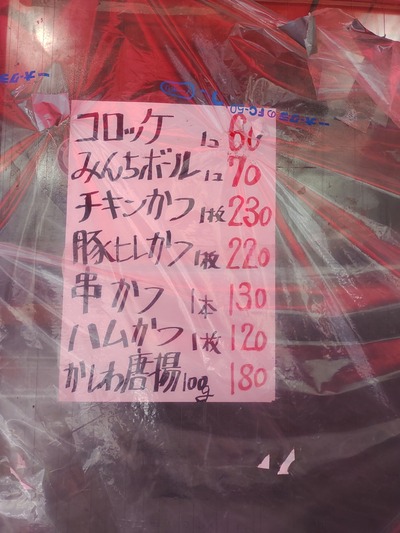 コロッケ 1コ 60
みんちボール 1コ 70
チキンかつ 1枚 230
豚ヒレかつ 1枚 220
串かつ 1本 130
ハムかつ 1枚 120
かしわ唐揚 100g 180